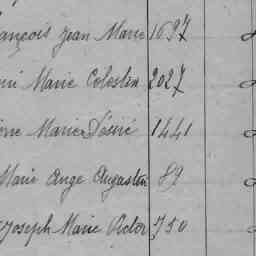 ançois Jean Marie 1697
Marie Celestin 2027
Marie Désiré 1441
Marie Ange Augustin 89
Joseph Marie Victor 750